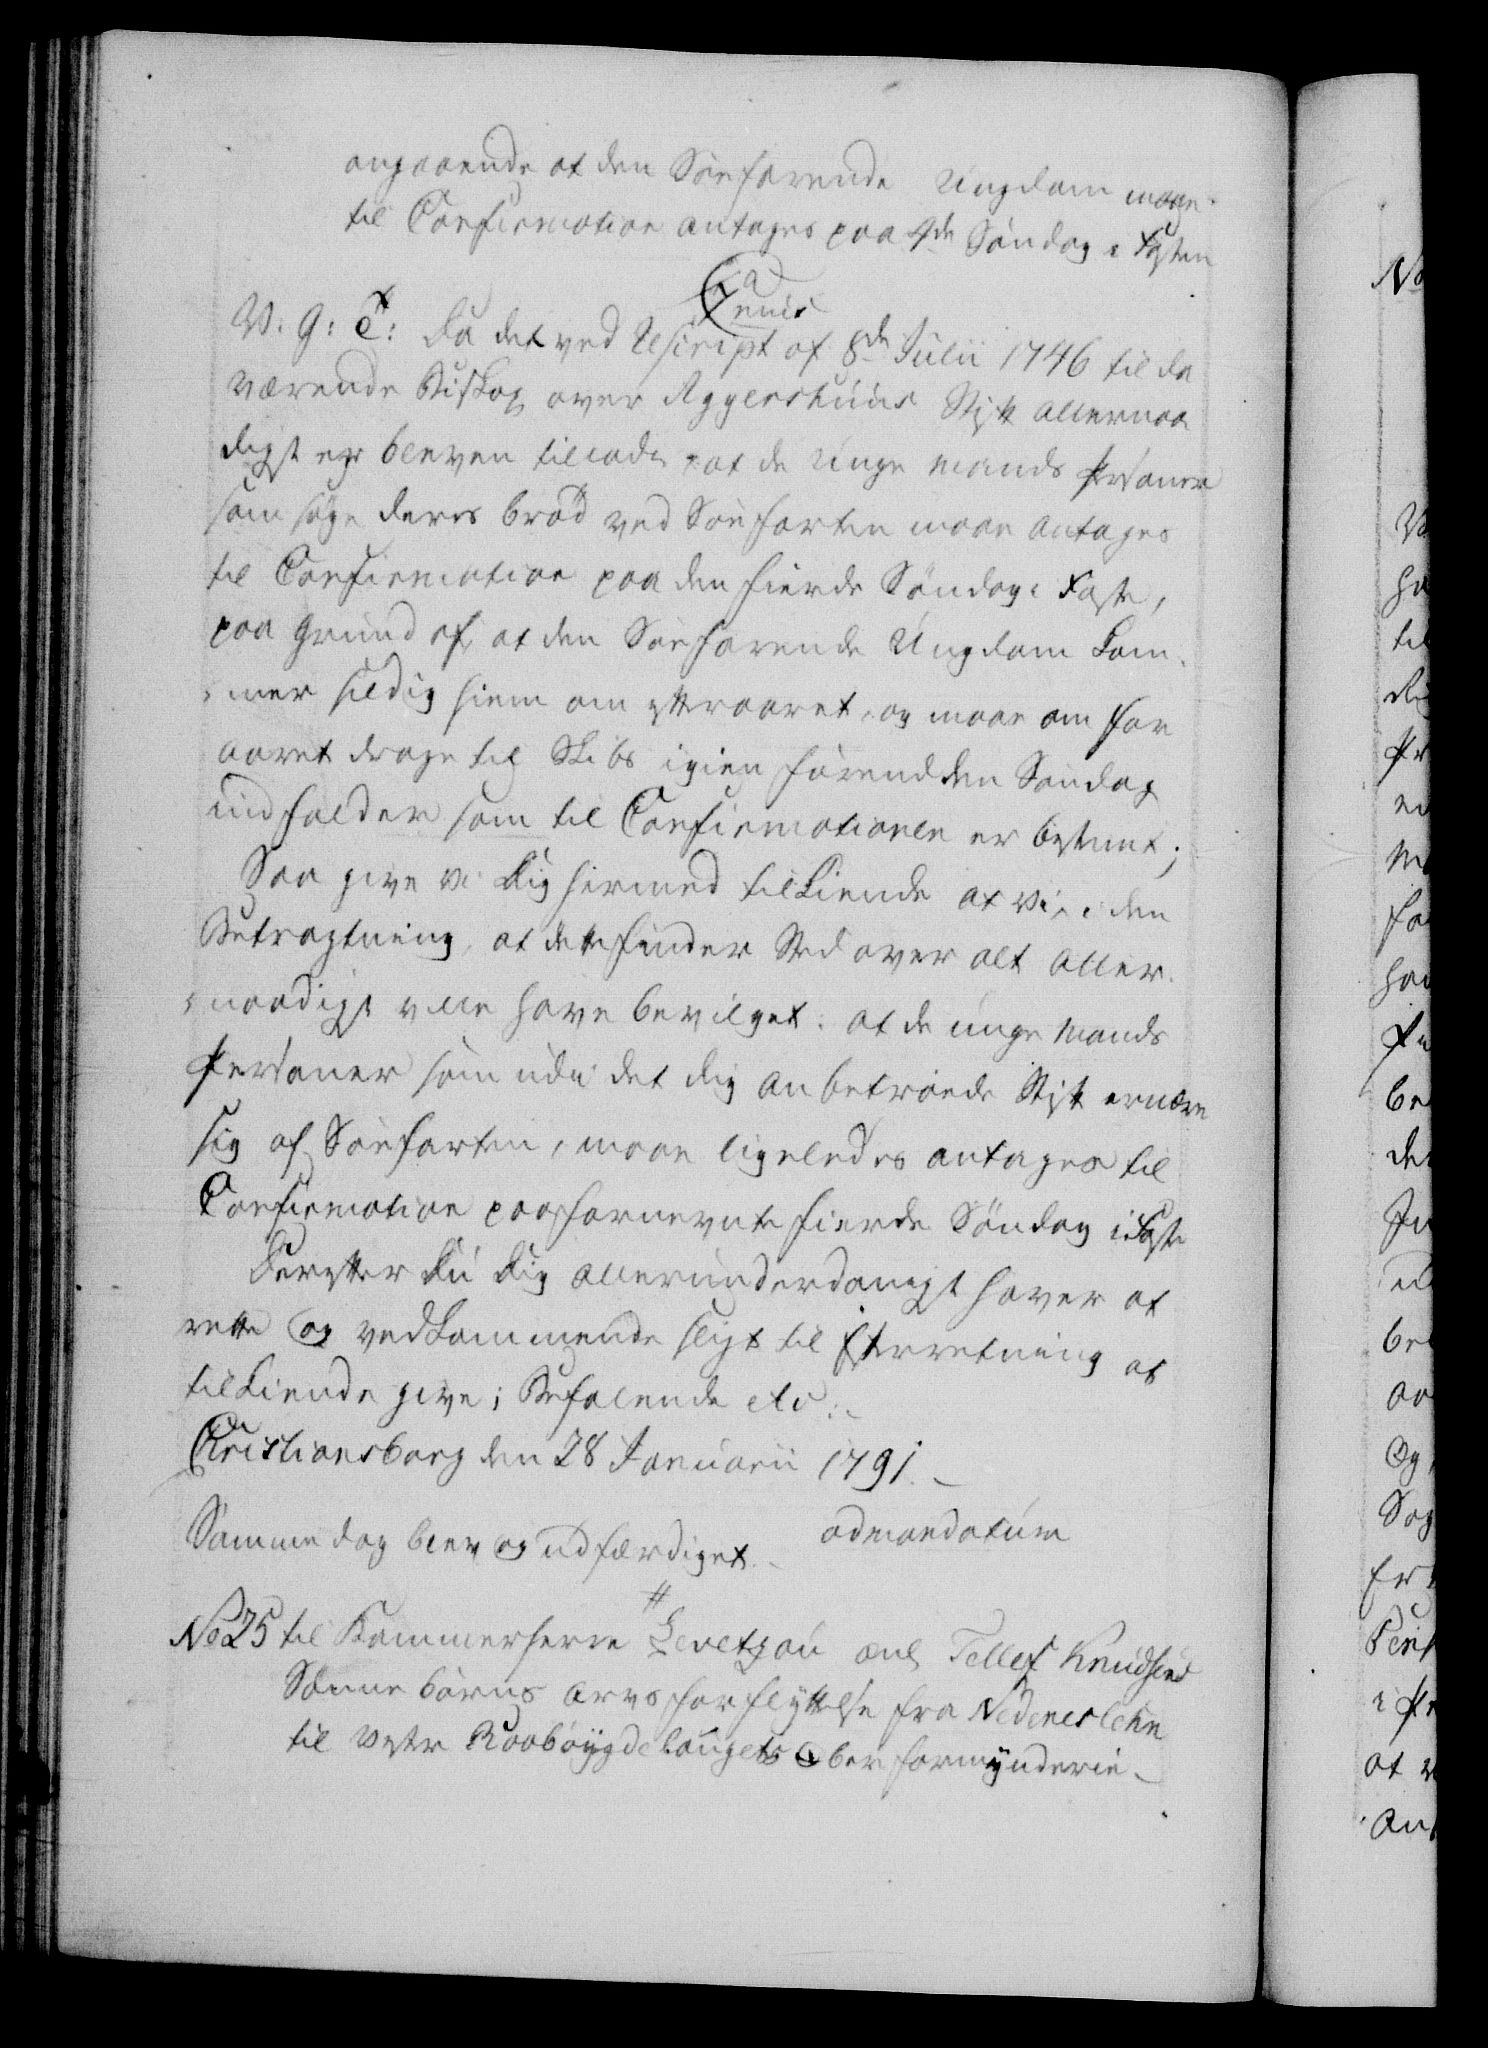 angaaende at den Søefarende Ungdom maae
til Confirmation antages paa 4de Søndag i Fasten
V. G: T: Da det ved Rescript af 8de Julii 1746 til da
værende Biskop over Aggershuus Stift allernaa
digst er bleven tilladt, at de Unge Mands Personer
som søge deres brød ved Søefarten maae antages
til Confirmation paa den fierde Søndag i Faste,
paa Grund af, at den Søefarende Ungdom kom-
mer sildig hiem om efteraaret, og maae om for
aaret drage til Skibs igien førend den Søndag
indfalder som til Confirmationen er bestemt;
Saa give vi Dig hermed tilkiende at vi, i den
Betragtning, at dette finder Sted over alt Aller-
naadigst ville have bevilget: at de unge Mands
Personer som udi det dig anbetroede Stift ernære
sig af Søefarten, maae ligeledes antages til
Confirmation paa fornevnte fierde Søndag i Faste
Derefter Du Dig allerunderdanigst haver at
rette og vedkommende sligt til Efterretning at
tilkiende give; Befalende etc:
Christiansborg den 28 Januarii 1791.
ad mandatum
Samme dag blev og udfærdiget
No 25 til Kammerherre Levetzau anl. Tellef Knudsens
Sønne børns Arvs forflyttelse fra Nedenes lehn
til Vester Raabøygdelaugets Oberformynderie